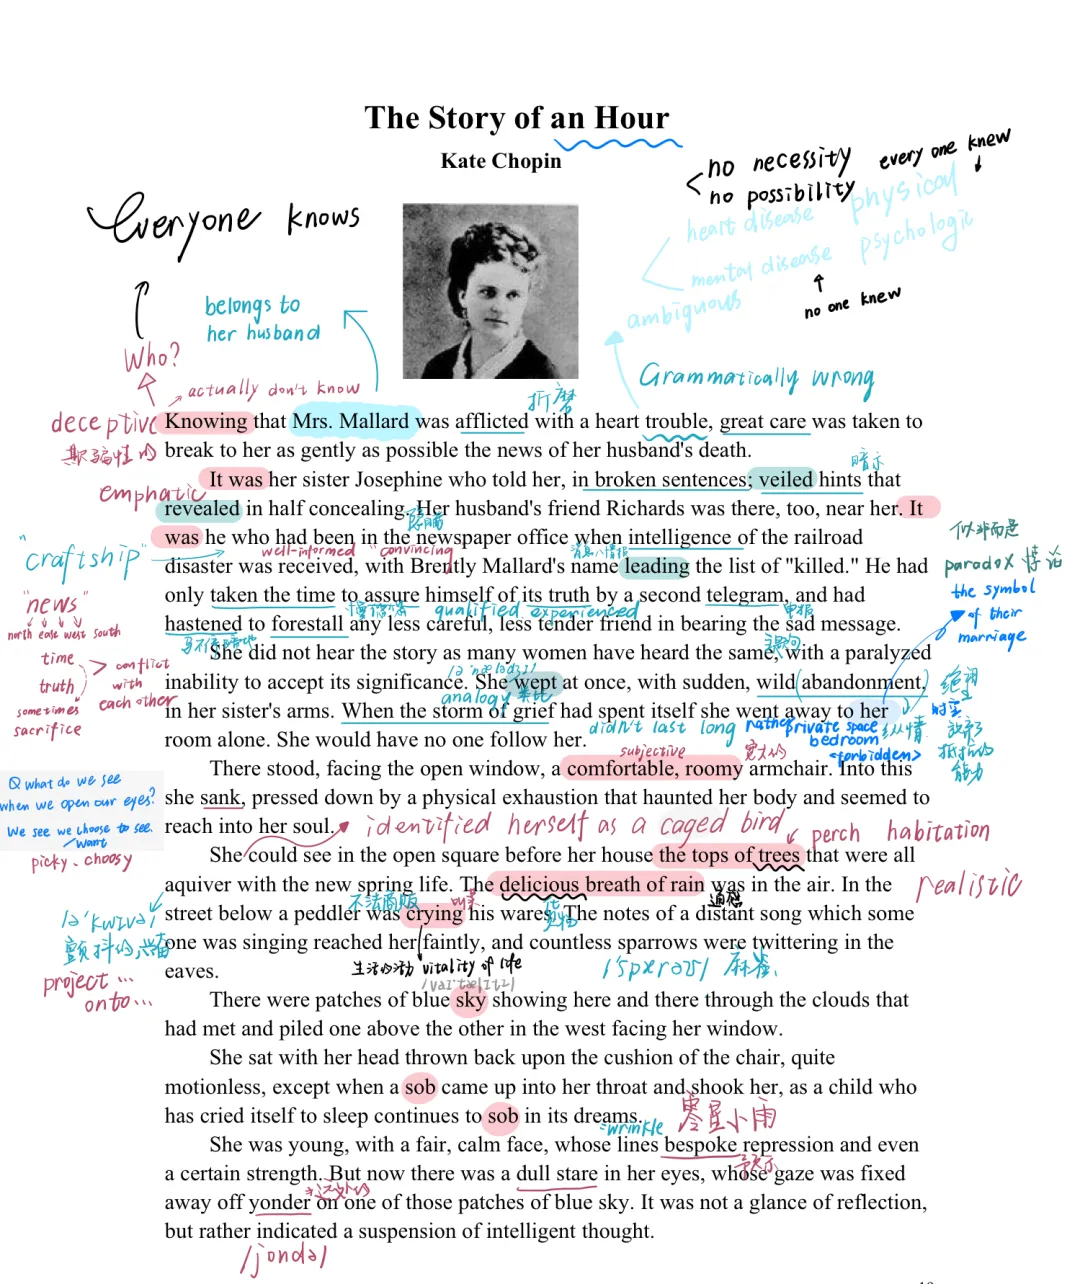 The Story of an Hour
Kate Chopin
no necessity
no possibility
every one knew
heart disease physical
mental disease psychologic
ambiguous
no one knew
Everyone knows
belongs to
her husband
Who?
actually don't know
Grammatically wrong
折磨
deceptive
欺骗性的
Knowing that Mrs. Mallard was afflicted with a heart trouble, great care was taken to
break to her as gently as possible the news of her husband's death.
暗示
emphatic
It was her sister Josephine who told her, in broken sentences; veiled hints that
revealed in half concealing. Her husband's friend Richards was there, too, near her. It
was he who had been in the newspaper office when intelligence of the railroad
"craftship"
well-informed
"convincing
似非而是
paradox 悖论
disaster was received, with Brently Mallard's name leading the list of "killed." He had
only taken the time to assure himself of its truth by a second telegram, and had
qualified experienced
电报
hastened to forestall any less careful, less tender friend in bearing the sad message.
"news"
north east west south
time
truth
conflict
with
each other
sometimes
sacrifice
the symbol
of their
marriage
She did not hear the story as many women have heard the same, with a paralyzed
inability to accept its significance. She wept at once, with sudden, wild abandonment,
analogy 类比
in her sister's arms. When the storm of grief had spent itself she went away to her
room alone. She would have no one follow her.
didn't last long
rather private space
bedroom
<forbidden>
纵情
subjective
宽大的
There stood, facing the open window, a comfortable, roomy armchair. Into this
she sank, pressed down by a physical exhaustion that haunted her body and seemed to
reach into her soul.
identified herself as a caged bird
perch habitation
Q what do we see
when we open our eyes?
We see we choose to see.
want
picky、choosy
She could see in the open square before her house the tops of trees that were all
aquiver with the new spring life. The delicious breath of rain was in the air. In the
realistic
不法商贩
叫卖
通感
street below a peddler was crying his wares. The notes of a distant song which some
one was singing reached her faintly, and countless sparrows were twittering in the
eaves.
/ə'kwɪvə/
颤抖的
project ...
onto ...
生活的活力 vitality of life
/vaɪ'tælɪtɪ/
/'spærəʊ/ 麻雀
There were patches of blue sky showing here and there through the clouds that
had met and piled one above the other in the west facing her window.
She sat with her head thrown back upon the cushion of the chair, quite
motionless, except when a sob came up into her throat and shook her, as a child who
has cried itself to sleep continues to sob in its dreams.
零星小雨
wrinkle
She was young, with a fair, calm face, whose lines bespoke repression and even
a certain strength. But now there was a dull stare in her eyes, whose gaze was fixed
预示
远处的
away off yonder on one of those patches of blue sky. It was not a glance of reflection,
but rather indicated a suspension of intelligent thought.
/jondə/